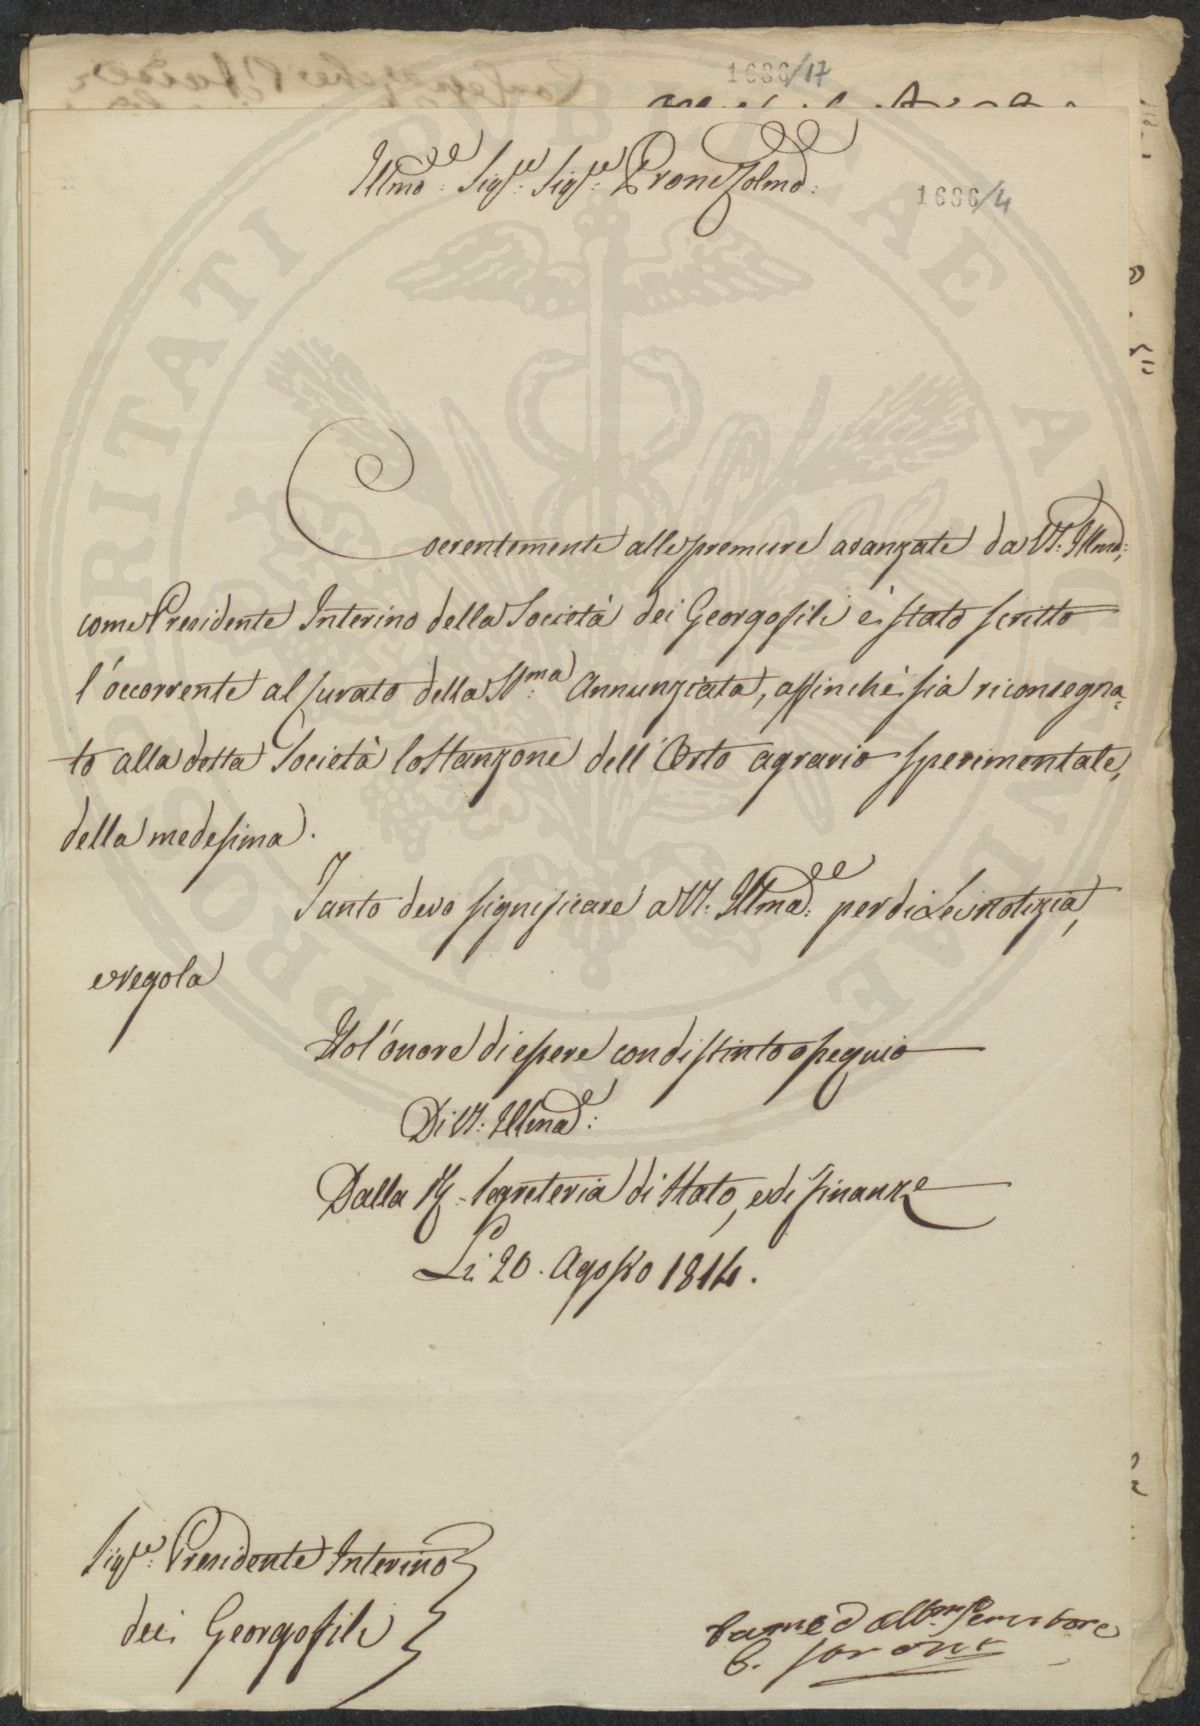 1686/17
1686/4
Illmo: Sigre: Sigre: Prone Colmo:
Coerentemente alle premure avanzate da VS: Illma:
come Presidente Interino della Società dei Georgofili è stato scritto
l'occorrente al Curato della SS:ma Annunziata, affinchè sia riconsegna=
to alla detta Società lo Stanzone dell'Orto agrario sperimentale,
della medesima.
Tanto devo significare a VS: Illma: per di Lei notizia,
e regola
Ho l'onore di essere con distinto ossequio
Di VS: Illma:
Dalla R. Segreteria di Stato, e di finanze
Li 20. Agosto 1814.
Sigre: Presidente Interino
dei Georgofili
Servitore
PROSPERITATI PUBLICAE AUGENDAE